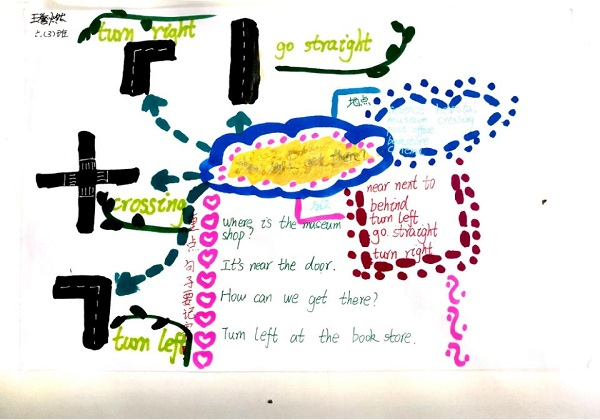 六(3)班
turn right
go straight
地点
museum crossing
get there!
crossing
near next to
behind
turn left
go straight
turn right
where is the museum
shop?
It's near the door.
How can we get there?
Turn left at the book store.
turn left
重点句子要记